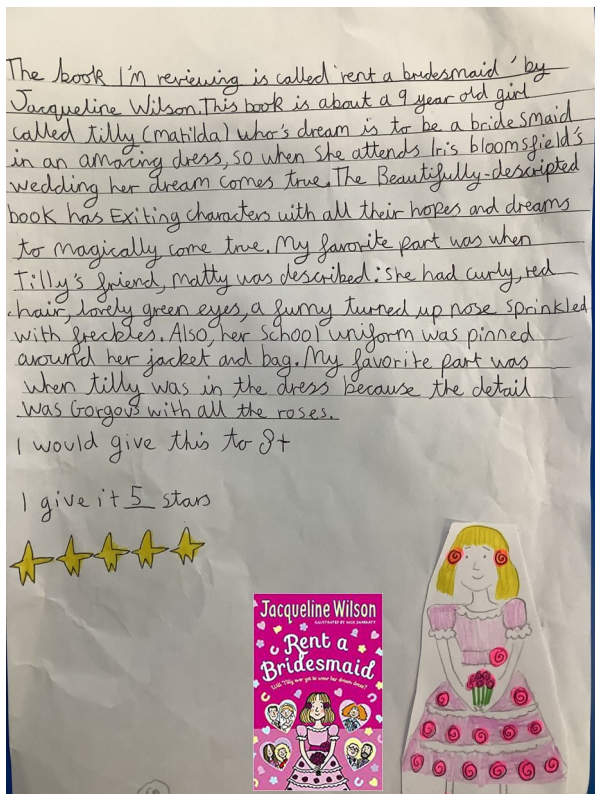 The book I'm reviewing is called 'rent a bridesmaid' by
Jacqueline Wilson. This book is about a 9 year old girl
called tilly (matilda) who's dream is to be a bridesmaid
in an amazing dress, so when she attends Iris bloomsfield's
wedding her dream comes true. The Beautifully-descripted
book has Exiting characters with all their hopes and dreams
to magically come true. My favorite part was when
Tilly's friend, Matty was described: she had curly, red
hair, lovely green eyes, a funny turned up nose sprinkled
with freckles. Also, her school uniform was pinned
around her jacket and bag. My favorite part was
when tilly was in the dress because the detail
was Gorgous with all the roses.
I would give this to 8+
I give it 5 stars
Jacqueline Wilson
ILLUSTRATED BY NICK SHARRATT
Rent a
Bridesmaid
Will Tilly ever get to wear her dream dress?